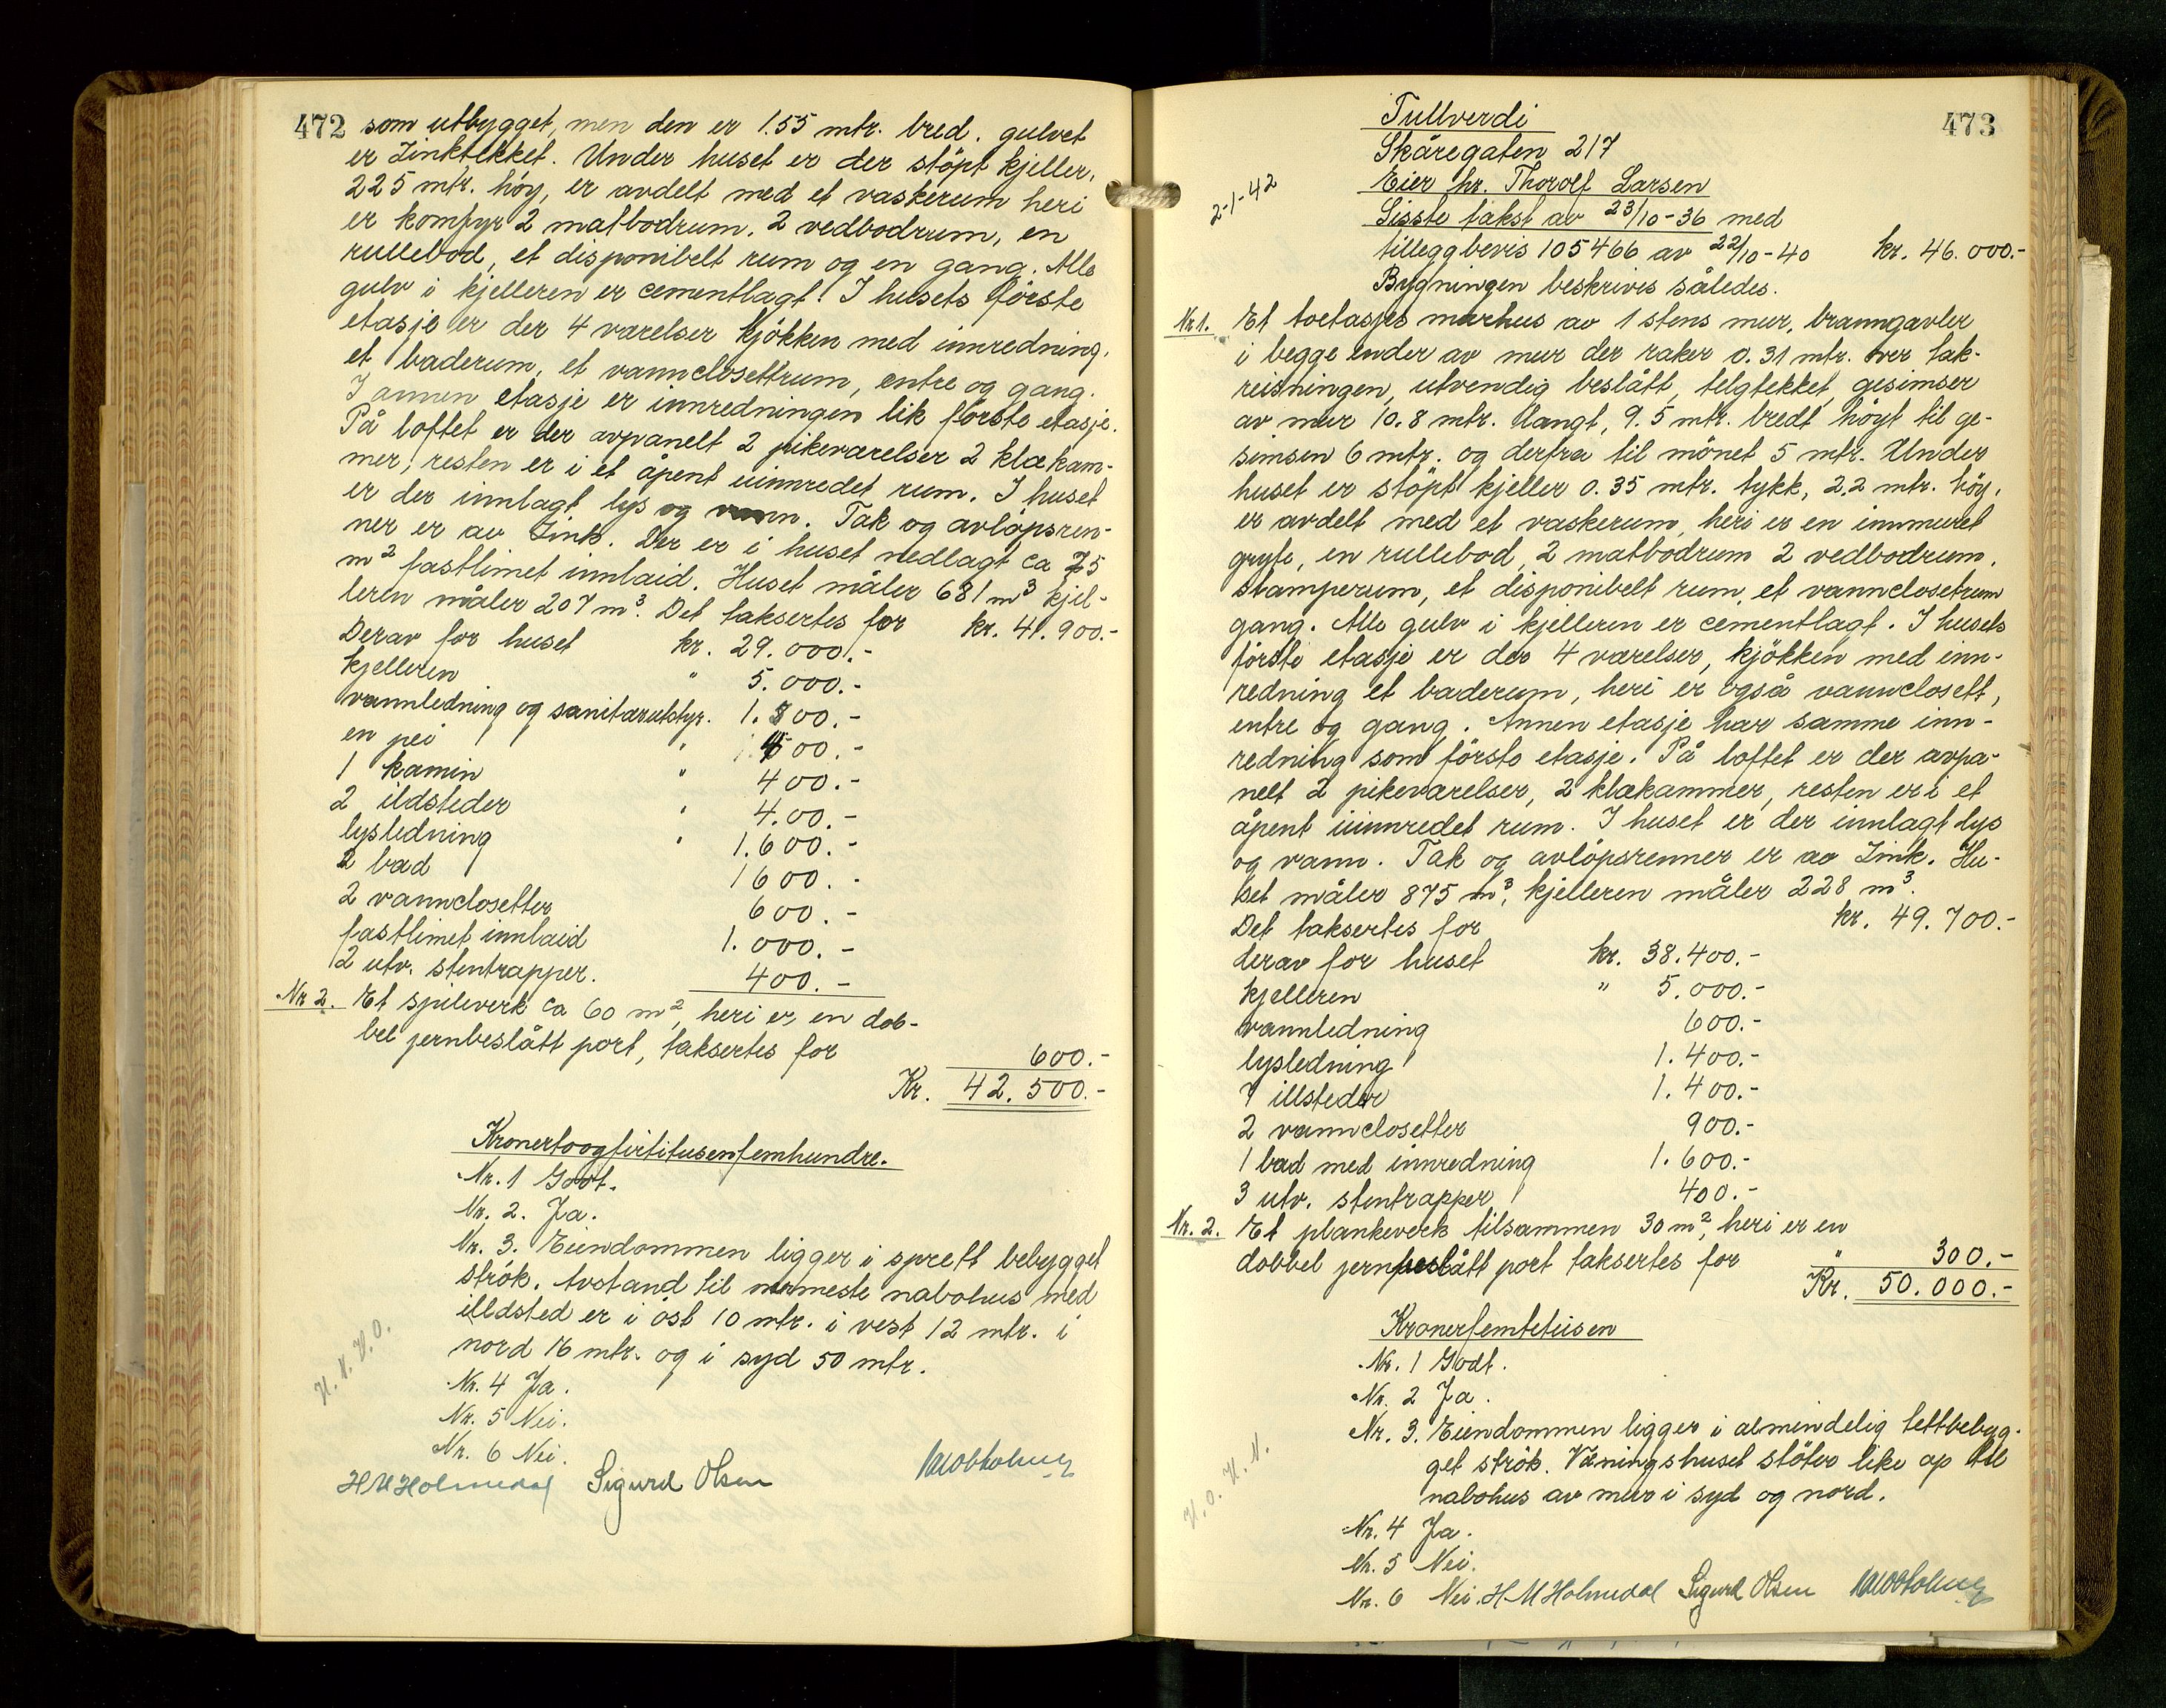 472 som utbygget, men den er 1.55 mtr. bred. gulvet
er Zinktekket. Under huset er der støpt kjeller,
225 mtr. høy, er avdelt med et vaskerum heri
er komfyr 2 matbodrum, 2 vedbodrum, en
rullebod, et disponibelt rum og en gang. Alle
gulv i kjelleren er cementlagt. I husets første
etasje er der 4 værelser kjøkken med innredning,
et baderum, et vannclosettrum, entre og gang.
I annen etasje er innredningen lik første etasje.
På loftet er der avpanelt 2 pikeværelser 2 klækam-
mer, resten er i et åpent uinnredet rum. I huset
er der innlagt lys og vann. Tak og avløpsren-
ner er av Zink. Der er i huset nedlagt ca 75
m² fastlimet innlaid. Huset måler 681 m³ kjel-
leren måler 207 m³. Det taksertes for kr. 41.900.-
Derav for huset kr. 29.000.-
kjelleren " 5.000.-
vannledning og sanitærutstyr. 1.500.-
en pei " 400.-
1 kamin " 400.-
2 ildsteder " 4.00.-
lysledning " 1.600.-
2 bad 1600.-
2 vannclosetter 600.-
fastlimet innlaid 1.000.-
2 utv. stentrapper. 400.-
Nr 2. Et spileverk ca 60 m², heri er en dob-
bel jernbeslått port, taksertes for 600.-
Kr. 42.500.-
Kronertoogfirtitusenfemhundre.
Nr. 1 Godt.
Nr. 2. Ja.
Nr. 3. Eiendommen ligger i sprett bebygget
strøk. Avstand til nærmeste nabohus med
illdsted er i øst 10 mtr. i vest 12 mtr. i
nord 16 mtr. og i syd 50 mtr.
Nr. 4 Ja.
Nr. 5 Nei.
Nr. 6 Nei.
H M Holmedal Sigurd Olsen
473
Fullverdi
Skåregaten 217
2-1-42
Eier hr. Thorolf Larsen
Sisste takst av 23/10-36 med
tilleggbevis 105466 av 22/10-40 kr. 46.000.-
Bygningen beskrivis således.
Nr 1. Et toetasjes murhus av 1 stens mur, branngavler
i begge ender av mur der raker 0.31 mtr. over tak-
reisningen, utvendig beslått, telgtekket, gesimser
av mur 10.8 mtr. langt, 9.5 mtr. bredt høyt til ge-
simsen 6 mtr. og derfra til mønet 5 mtr. Under
huset er støpt kjeller 0.35 mtr. tykk, 2.2 mtr. høy,
er avdelt med et vaskerum, heri er en innmuret
gryte, en rullebod, 2 matbodrum 2 vedbodrum,
stamperum, et disponibelt rum, et vannclosetrum
gang. Alle gulv i kjelleren er cementlagt. I husets
første etasje er der 4 værelser, kjøkken med enn-
redning et baderum, heri er også vannclosett,
entre og gang. Annen etasje har samme inn-
redning som første etasje. På loftet er der avpa-
nelt 2 pikeværelser, 2 klækammer, resten er i et
åpent uinnredet rum. I huset er der innlagt lys
og vann. Tak og avløpsrenner er av Zink. Hu-
set måler 875 m³, kjelleren måler 228 m³.
Det taksertes for kr. 49.700.-
derav for huset kr. 38.400.-
kjelleren " 5.000.-
vannledning 600.-
lysledning 1.400.-
7 illsteder 1.400.-
2 vannclosetter 900.-
1 bad med innredning 1.600.-
3 utv. stentrapper 400.-
Nr. 2. Et plankeverk tilsammen 30 m², heri er en
dobbel jernbeslått port taksertes for " 300.-
Kr. 50.000.-
Kronerfemtetusen
Nr. 1 Godt.
Nr. 2 Ja.
Nr. 3. Eiendommen ligger i almindelig tettbebyg-
get strøk. Våningshuset støter like op til
nabohus av mur i syd og nord.
Nr. 4 Ja.
Nr. 5 Nei.
Nr. 6 Nei. H M Holmedal Sigurd Olsen